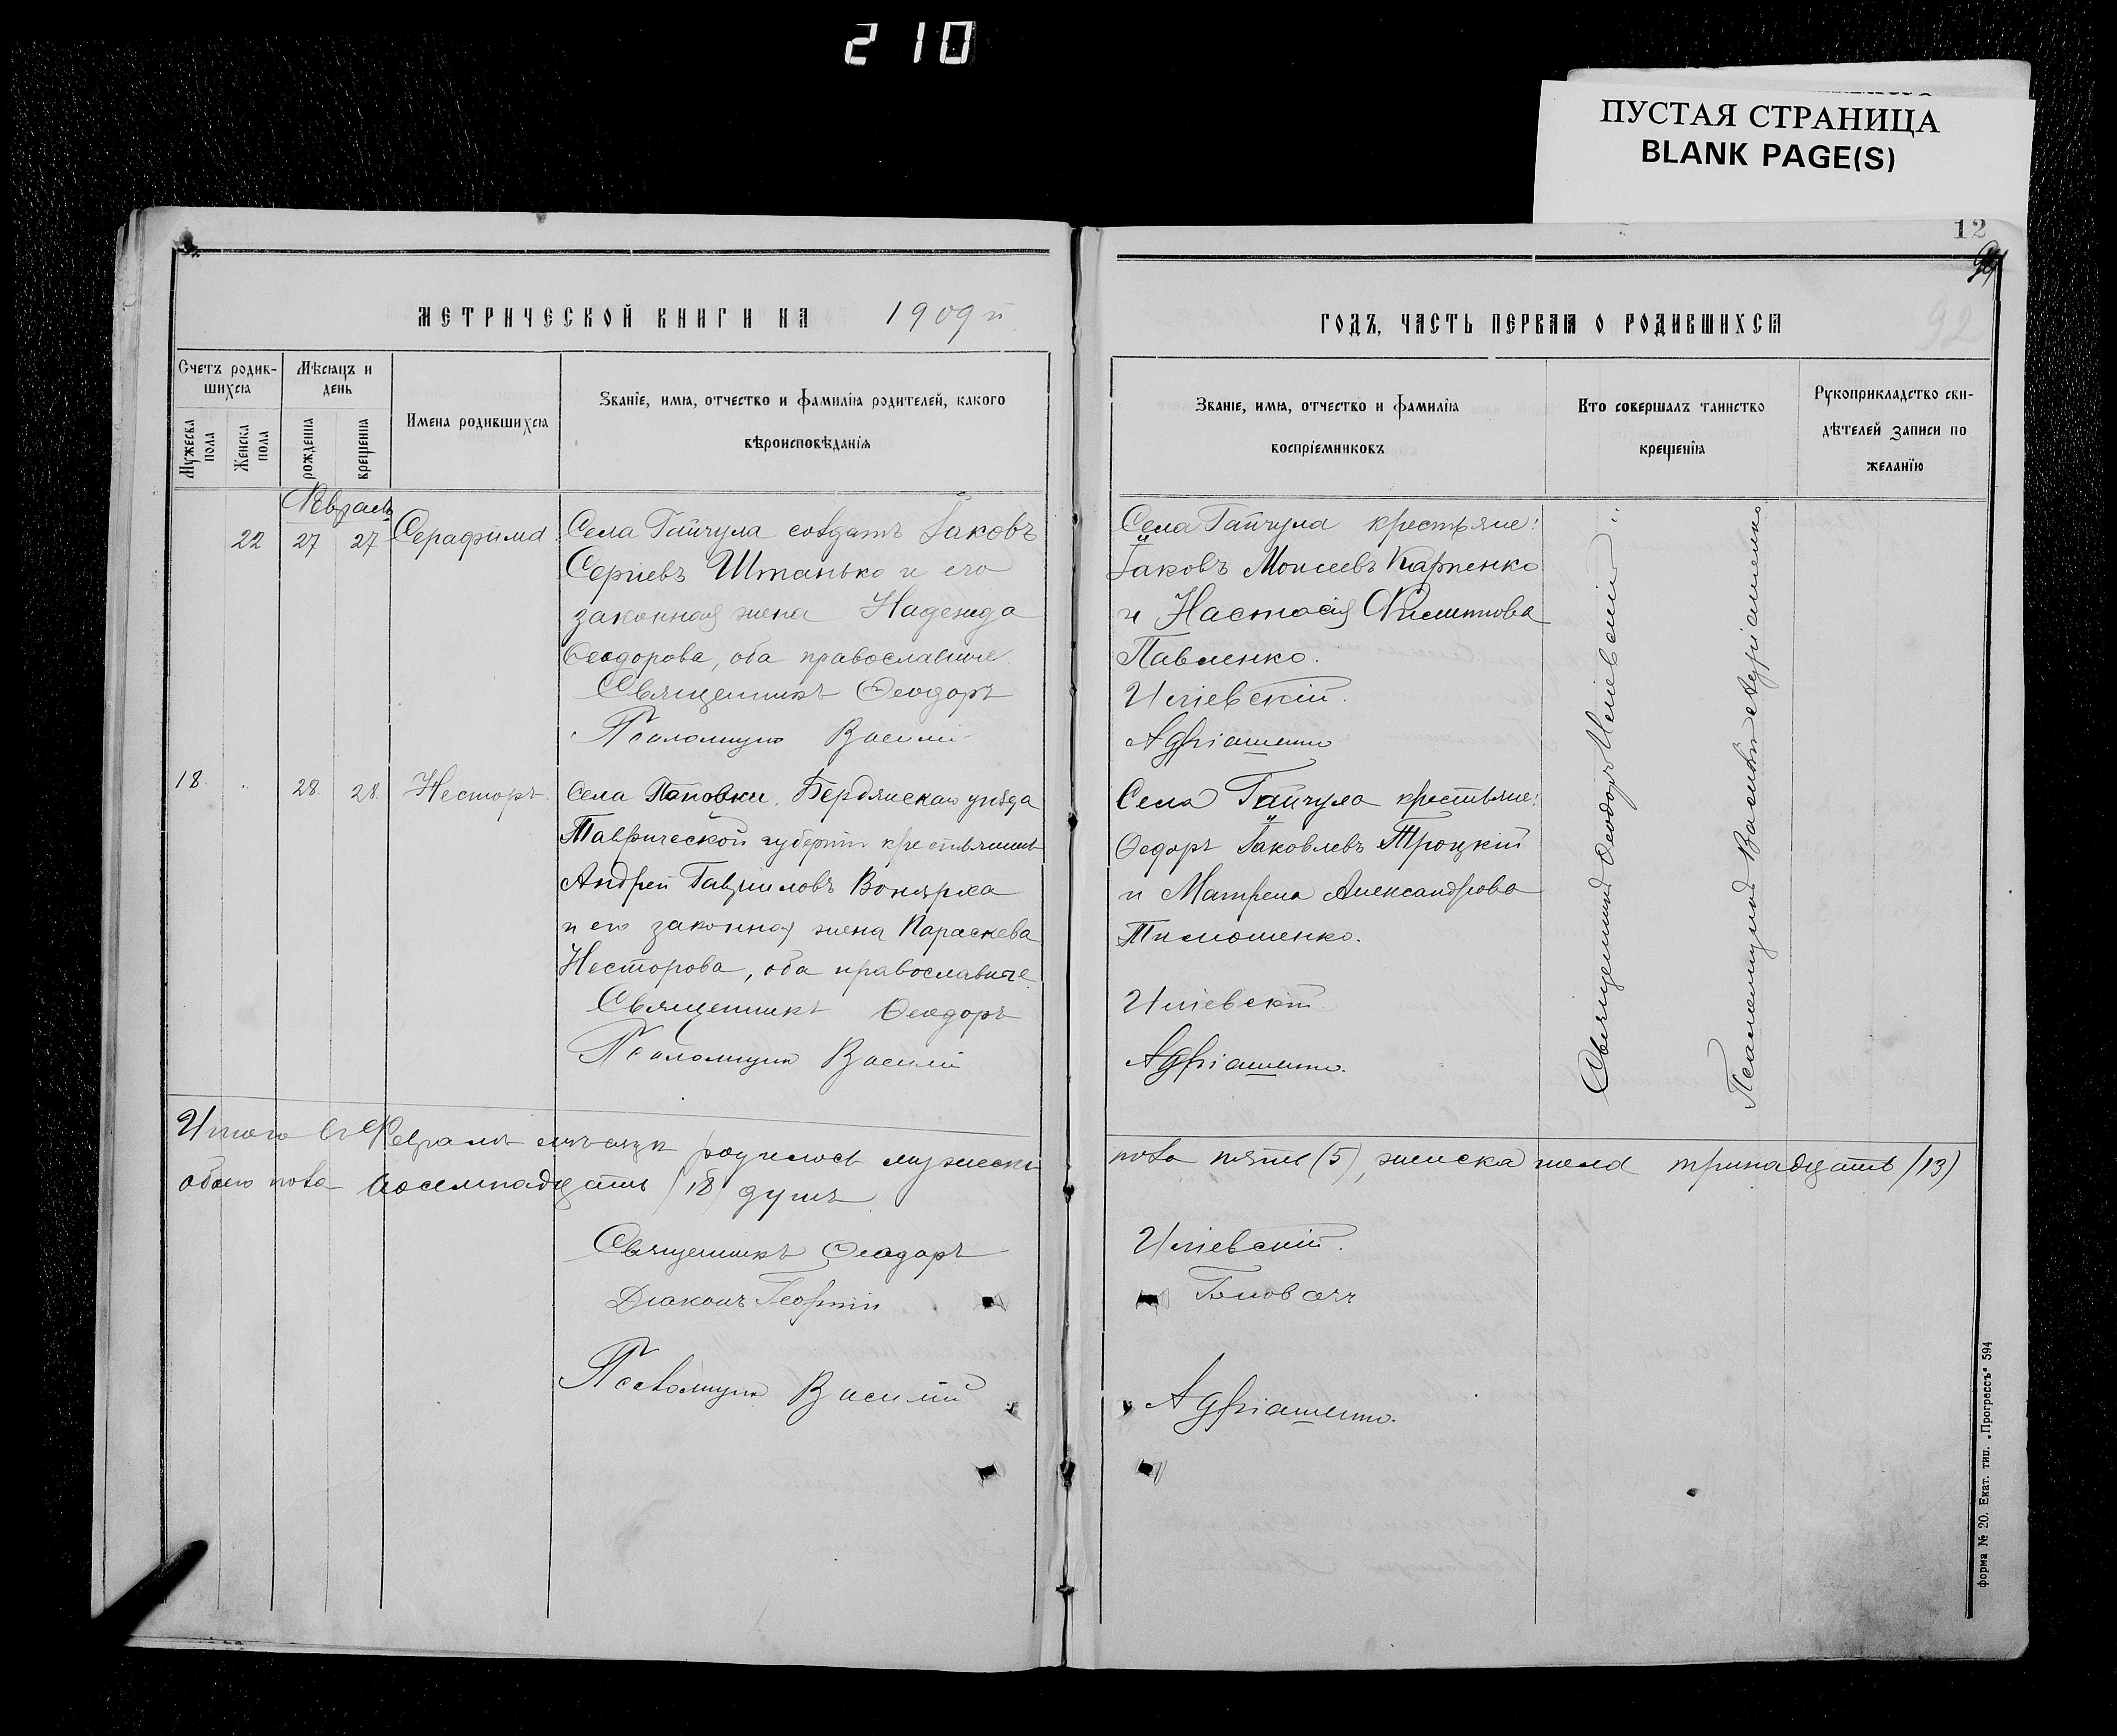 210
ПУСТАЯ СТРАНИЦА
BLANK PAGE(S)
12
92
МЕТРИЧЕСКОЙ КНИГИ НА 1909й
ГОДЪ, ЧАСТЬ ПЕРВАЯ О РОДИВШИХСЯ
Счетъ родив-
шихся
Мужеска пола
Женска пола
Мѣсяцъ и
день
рожденія
крещенія
Имена родившихся
Званіе, имя, отчество и фамилія родителей, какого
вѣроисповѣданія
Званіе, имя, отчество и фамилія
воспріемниковъ
Кто совершалъ таинство
крещенія
Рукоприкладство сви-
дѣтелей записи по
желанію
Февраль
22 27 27 Серафима
Села Гайчула солдатъ Іаковъ
Сергіевъ Штанько и его
законная жена Надежда
Ѳеодорова, оба православные
Священникъ Ѳеодоръ
Псаломщикъ Василій
Села Гайчула крестьяне:
Іаковъ Моисеевъ Карпенко
и Настасія Филиппова
Павленко.
Ильевскій.
Адріашенко
18 28 28 Несторъ
Села Поповки, Бердянскаго уѣзда
Таврической губерніи крестьянинъ
Андрей Гавриловъ Вонярха
и его законная жена Параскева
Несторова, оба православные
Священникъ Ѳеодоръ
Псаломщикъ Василій
Села Гайчула крестьяне:
Ѳедоръ Іаковлевъ Троцкій
и Матрена Александрова
Тимошенко.
Ильевскій
Адріашенко.
Священникъ Ѳеодоръ Ильевскій
Псаломщикъ Василій Адріашенко
Итого въ Февралѣ мѣсяцѣ родилось мужеска
пола пять (5), женска пола тринадцать (13)
обоего пола восемнадцать (18) душъ
Священникъ Ѳеодоръ
Ильевскій.
Діаконъ Георгій
Головачъ
Псаломщикъ Василій
Адріашенко.
форма № 20. Екат. тип. „Прогрессъ“ 594